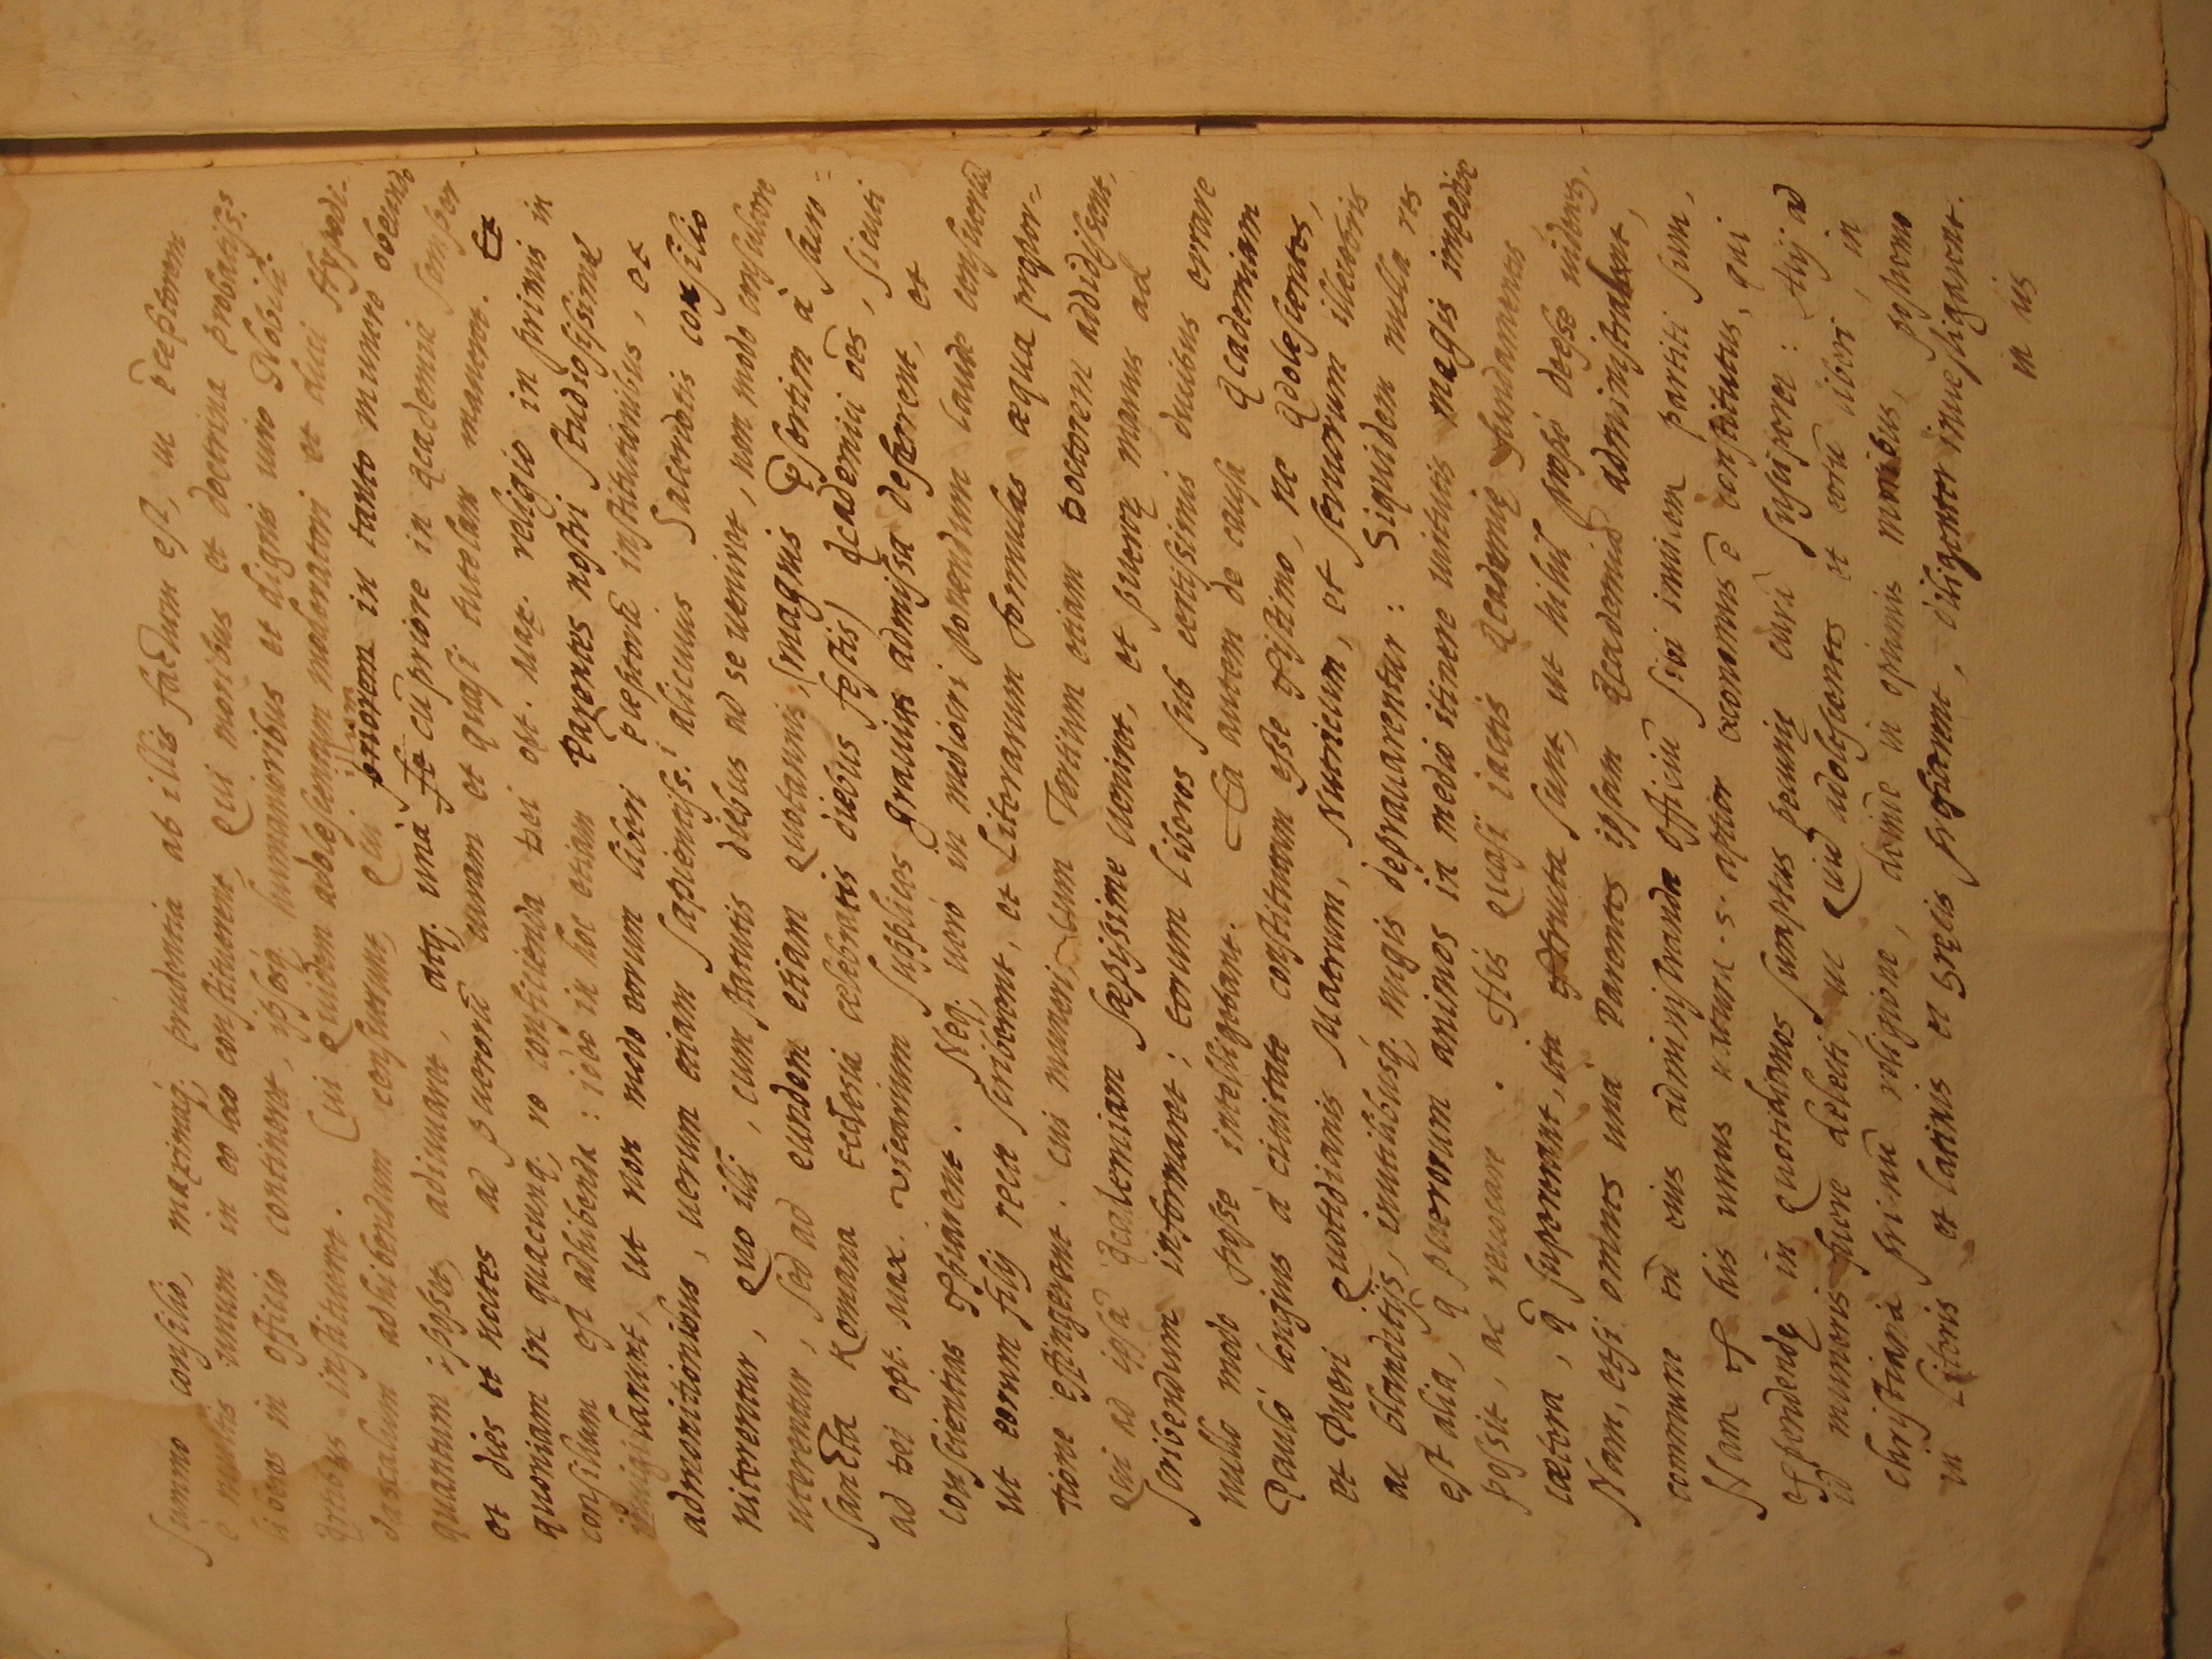 summo consilio, maximaq; prudentia ab illis factum est, ut p̄ceptorem
e multis unum in eo loco constituerent, Qui moribus et doctrina probatiss.
liberos in officio contineret, ipsosq; humanioribus et dignis uiro Nobili
artibus institueret. Cui Quidem adolescentum moderatori et duci Hypodi-
dascalum adhibendum censuerunt, Qui illum priorem in tanto munere obeundo
quantum ipse posset, adiuuaret, atq; una cū priore in Academia semper
et dies et noctes ad puerorū curam et quasi tutelam maneret. Et
quoniam in quacunq; re conficienda Dei opt. Max. religio in primis in
consilium est adhibenda: ideo in hoc etiam Parentes nostri studiosissime
inuigilarunt, ut non modo eorum liberi p̄ceptorū institutionibus, et
admonitionibus, uerum etiam sapientiss.i alicuius Sacerdotis consilio
niterentur, Quo illi, cum statutis diebus ad se ueniret, non modo consultore
uterentur, sed ad eundem etiam Quotannis, (magnis p̄sertim à sacro=
sancta Romana Ecclesia celebratis diebus festis) Academici oēs, sicuti
ad Dei opt. Max. Vicarium supplices grauius admissa deferrent, et
conscientias expiarent. Neq; uero in mediocri ponendum laude censuerunt
ut eorum filij recte scriberent, et Literarum formulas æqua propor=
tione effingerent. cui muneri, cum Tertium etiam Doctorem addidissent,
Qui ad ipsā Academiam sæpissime ueniret, et pueroꝝ manus ad
scribendum informaret; eorum Liberos sub certissimis ducibus errare
nullo modo posse intelligebant. Ea autem de causa Academiam
Paulò longius à ciuitate constitutam esse existimo, ne Adolescentes,
et Pueri Quotidianis Matrum, Nutricum, et seruorum illecebris
ac blanditijs, inutilibusq; nugis deprauarentur: Siquidem nulla res
est alia, q̄ puerorum animos in medio itinere uirtutis magis impedire
possit, ac reuocare. His Quasi iactis Academię fundamentis
cætera, q̄ supererant, ita extructa sunt, ut nihil propè deesse uideretur.
Nam, etsi omnes una Parentes ipsam Academiā administrabant,
commune tn̄ eius administrandæ officiū sibi inuicem partiti sunt,
Nam ex his unus œconomus ē constitutus, qui
expendendę in Quotidianos sumptus pecunię curā susciperet: Alij ad
id muneris fuere delecti, ut Quid adolescentes et eorū liberi, in
christiana primū religione, deinde in optimis moribus, postremo
in Literis et latinis et gręcis proficerent, diligenter inuestigarent.
in iis